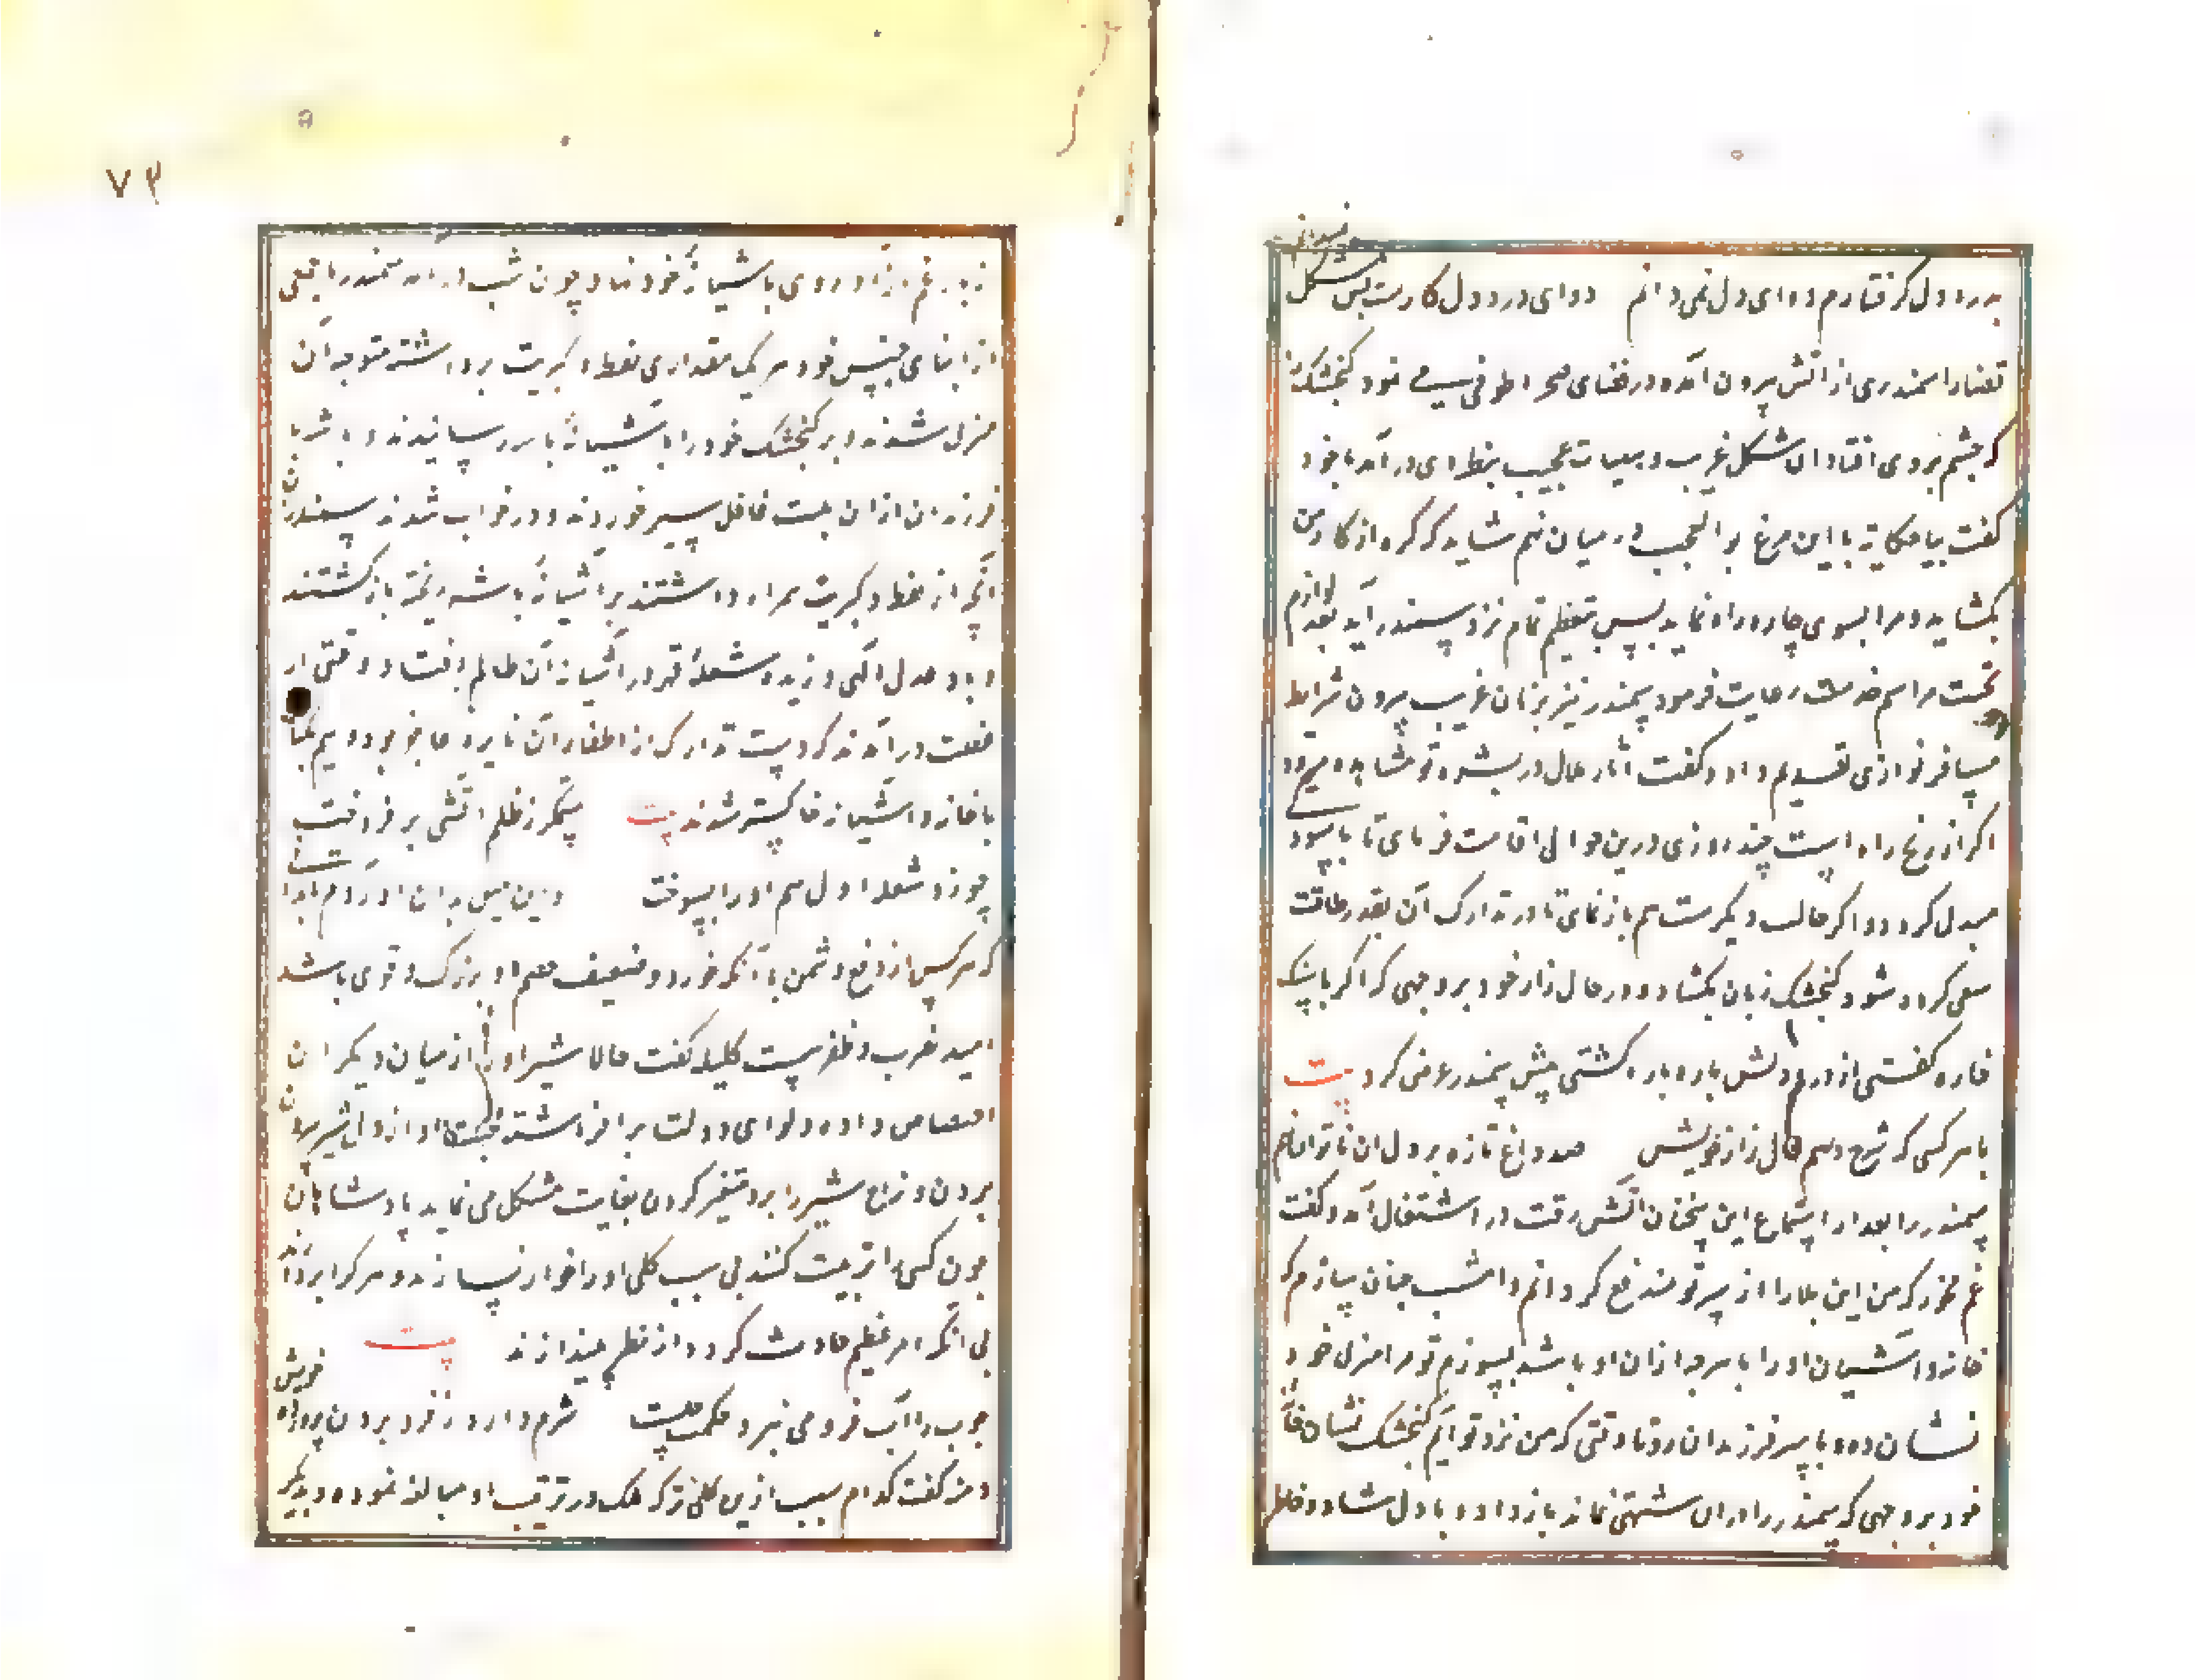 بدرد دل گرفتارم دوای دل نمی دانم دوای درد دل کاریست بس مشکل
قضارا سمندری از آتش بیرون آمده در فضای صحرا طوفی می نمود گنجشک را
که چشم بر وی افتاد آن شکل غریب و هیات عجیب بنظر وی درآمد با خود
گفت بیا حکایة با این مرغ بو العجب در میان نهم شاید که گره از کار من
بگشاید و مرا بسوی چاره راه نماید پس بتعظیم تمام نزد سمندر آید بعد لوازم
تحیت مراسم خدمت رعایت فرمود سمندر نیز بزبان غریب پرون شرایط
مسافر نوازی تقدیم داد و گفت آثار ملال در بشره تو مشاهده میرود
اگر از رنج راه است چند روزی درین حوالی اقامت فرمای تا بآسود
مبدل گردد و اگر حالت دیگرست هم باز نمای تا در تدارک آن بقدر طاقت
سعی کرده شود گنجشک زبان بگشاد و در حال زار خود بر وجهی که اگر با سنگ
خاره گفتی از درد دلش پاره پاره گشتی پیش سمندر عرض کرد بیت
با هر کسی که شرح دهم حال زار خویش صد داغ تازه بر دل آن ناتوان نهم
سمندر را بعد از استماع این سخنان آتش رقت در اشتعال آمد و گفت
غم مخور که من این بلا را از سر تو مندفع گردانم و امشب چنان سازم که
خانه و آشیان او را با هر چه از آن او باشد بسوزم تو مرا منزل خود
نشان ده و با سر فرزندان رو تا وقتی که من نزد تو آیم گنجشک نشان خانه
خود بر وجهی که سمندر را در آن شبهتی نماند باز داد و با دل شاد و خاطر
۷۳
زبد رغم آزاد روی باشیانهٔ خود نهاد چون شب درآمد سمندر با جمعی
از ابنای جنس خود هر یک مقداری نفط و کبریت برداشته متوجه آن
منزل شدند و بر گنجشک خود را باشیانهٔ باشه رسانیدند و باشه با
فرزندان از آن محنت غافل سیر خورده و در خواب شدند سمندران
آنچه از نفط و کبریت همراه داشتند بر آشیانهٔ باشه ریخته بازگشتند
و باد عدل الهی وزیده شعلهٔ قهر در آشیانهٔ آن ظالم افتاد و وقتی از
غفلت درآمدند که دست تدارک از اطفاء آن نایره عاجز بود و هم بیکبار
با خانه و آشیانه خاکستر شدند بیت ستمگر ز ظلم آتشی بر فروخت
چو زد شعله اول هم او را بسوخت و این مثل بدان آوردم تا بدانی
که هر کس از دفع دشمن با آنکه خورد و ضعیف خصم او بزرگ و قوی باشد
امید ضرب و ظفر هست کلیله گفت حالا شیر او را از میان دیگران
اختصاص داده و لوای دولت بر افراشته محبت او از دل شیر بیرون
بردن و مزاج شیر را برو متغیر کردن بغایت مشکل می نماید پادشاهان
چون کسی را تربیت کنند بی سبب کلی او را خوار نسازند و هر کرا بردارند
بی آنکه امر عظیم حادث گردد از نظر نیندازند بیت
چوب را آب فرو می نبرد حکمت چیست شرم دارد ز فرو بردن پرورده خویش
دمنه گفت کدام سبب ازین کلی تر که ملک در تربیت او مبالغه نموده و بدیگر